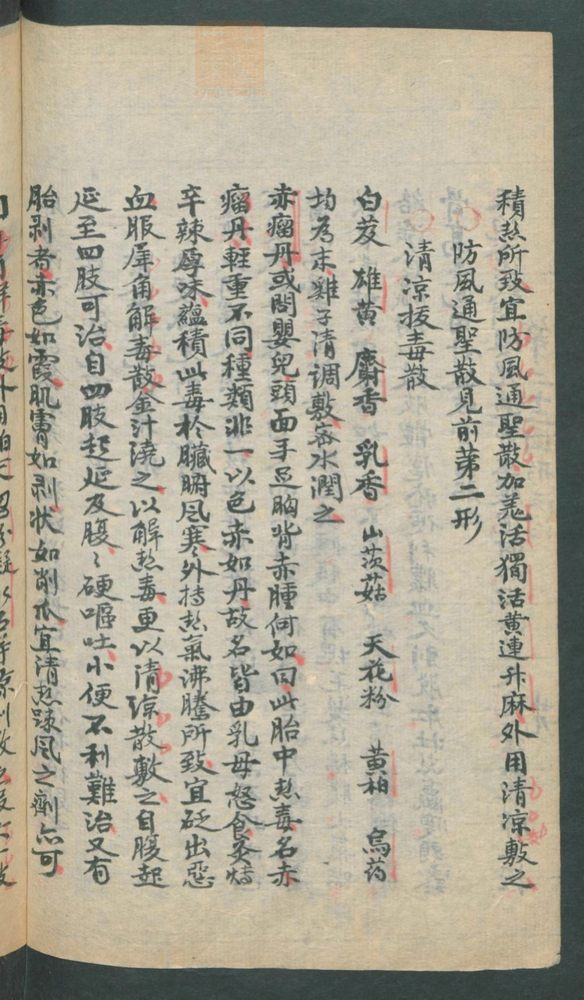 積热所致宜防風通聖散加羗活獨活黄連升麻外用清凉敷之
防風通聖散見前苐二形
清凉拔毒散
白芨 雄黄 麝香 乳香 山茨菇 天花粉 黄柏 烏药
均為末雞子清调敷水潤之
赤瘤丹或問嬰兒頭面手足胸背赤腫何如曰此胎中热毒名赤
瘤丹輕重不同種類非一以色赤如丹故名皆由乳母怒食炙煿
辛辣厚味蘊積此毒於臟腑風寒外持热氣沸騰所致宜砭出惡
血服犀角解毒散金汁澆之以解热毒更以清凉散敷之自腹起
延至四肢可治自四肢起延及腹〻硬嘔吐小便不利難治又有
胎剥者赤色如霞肌膚如剥状如削瓜宜清热踈風之劑亦可